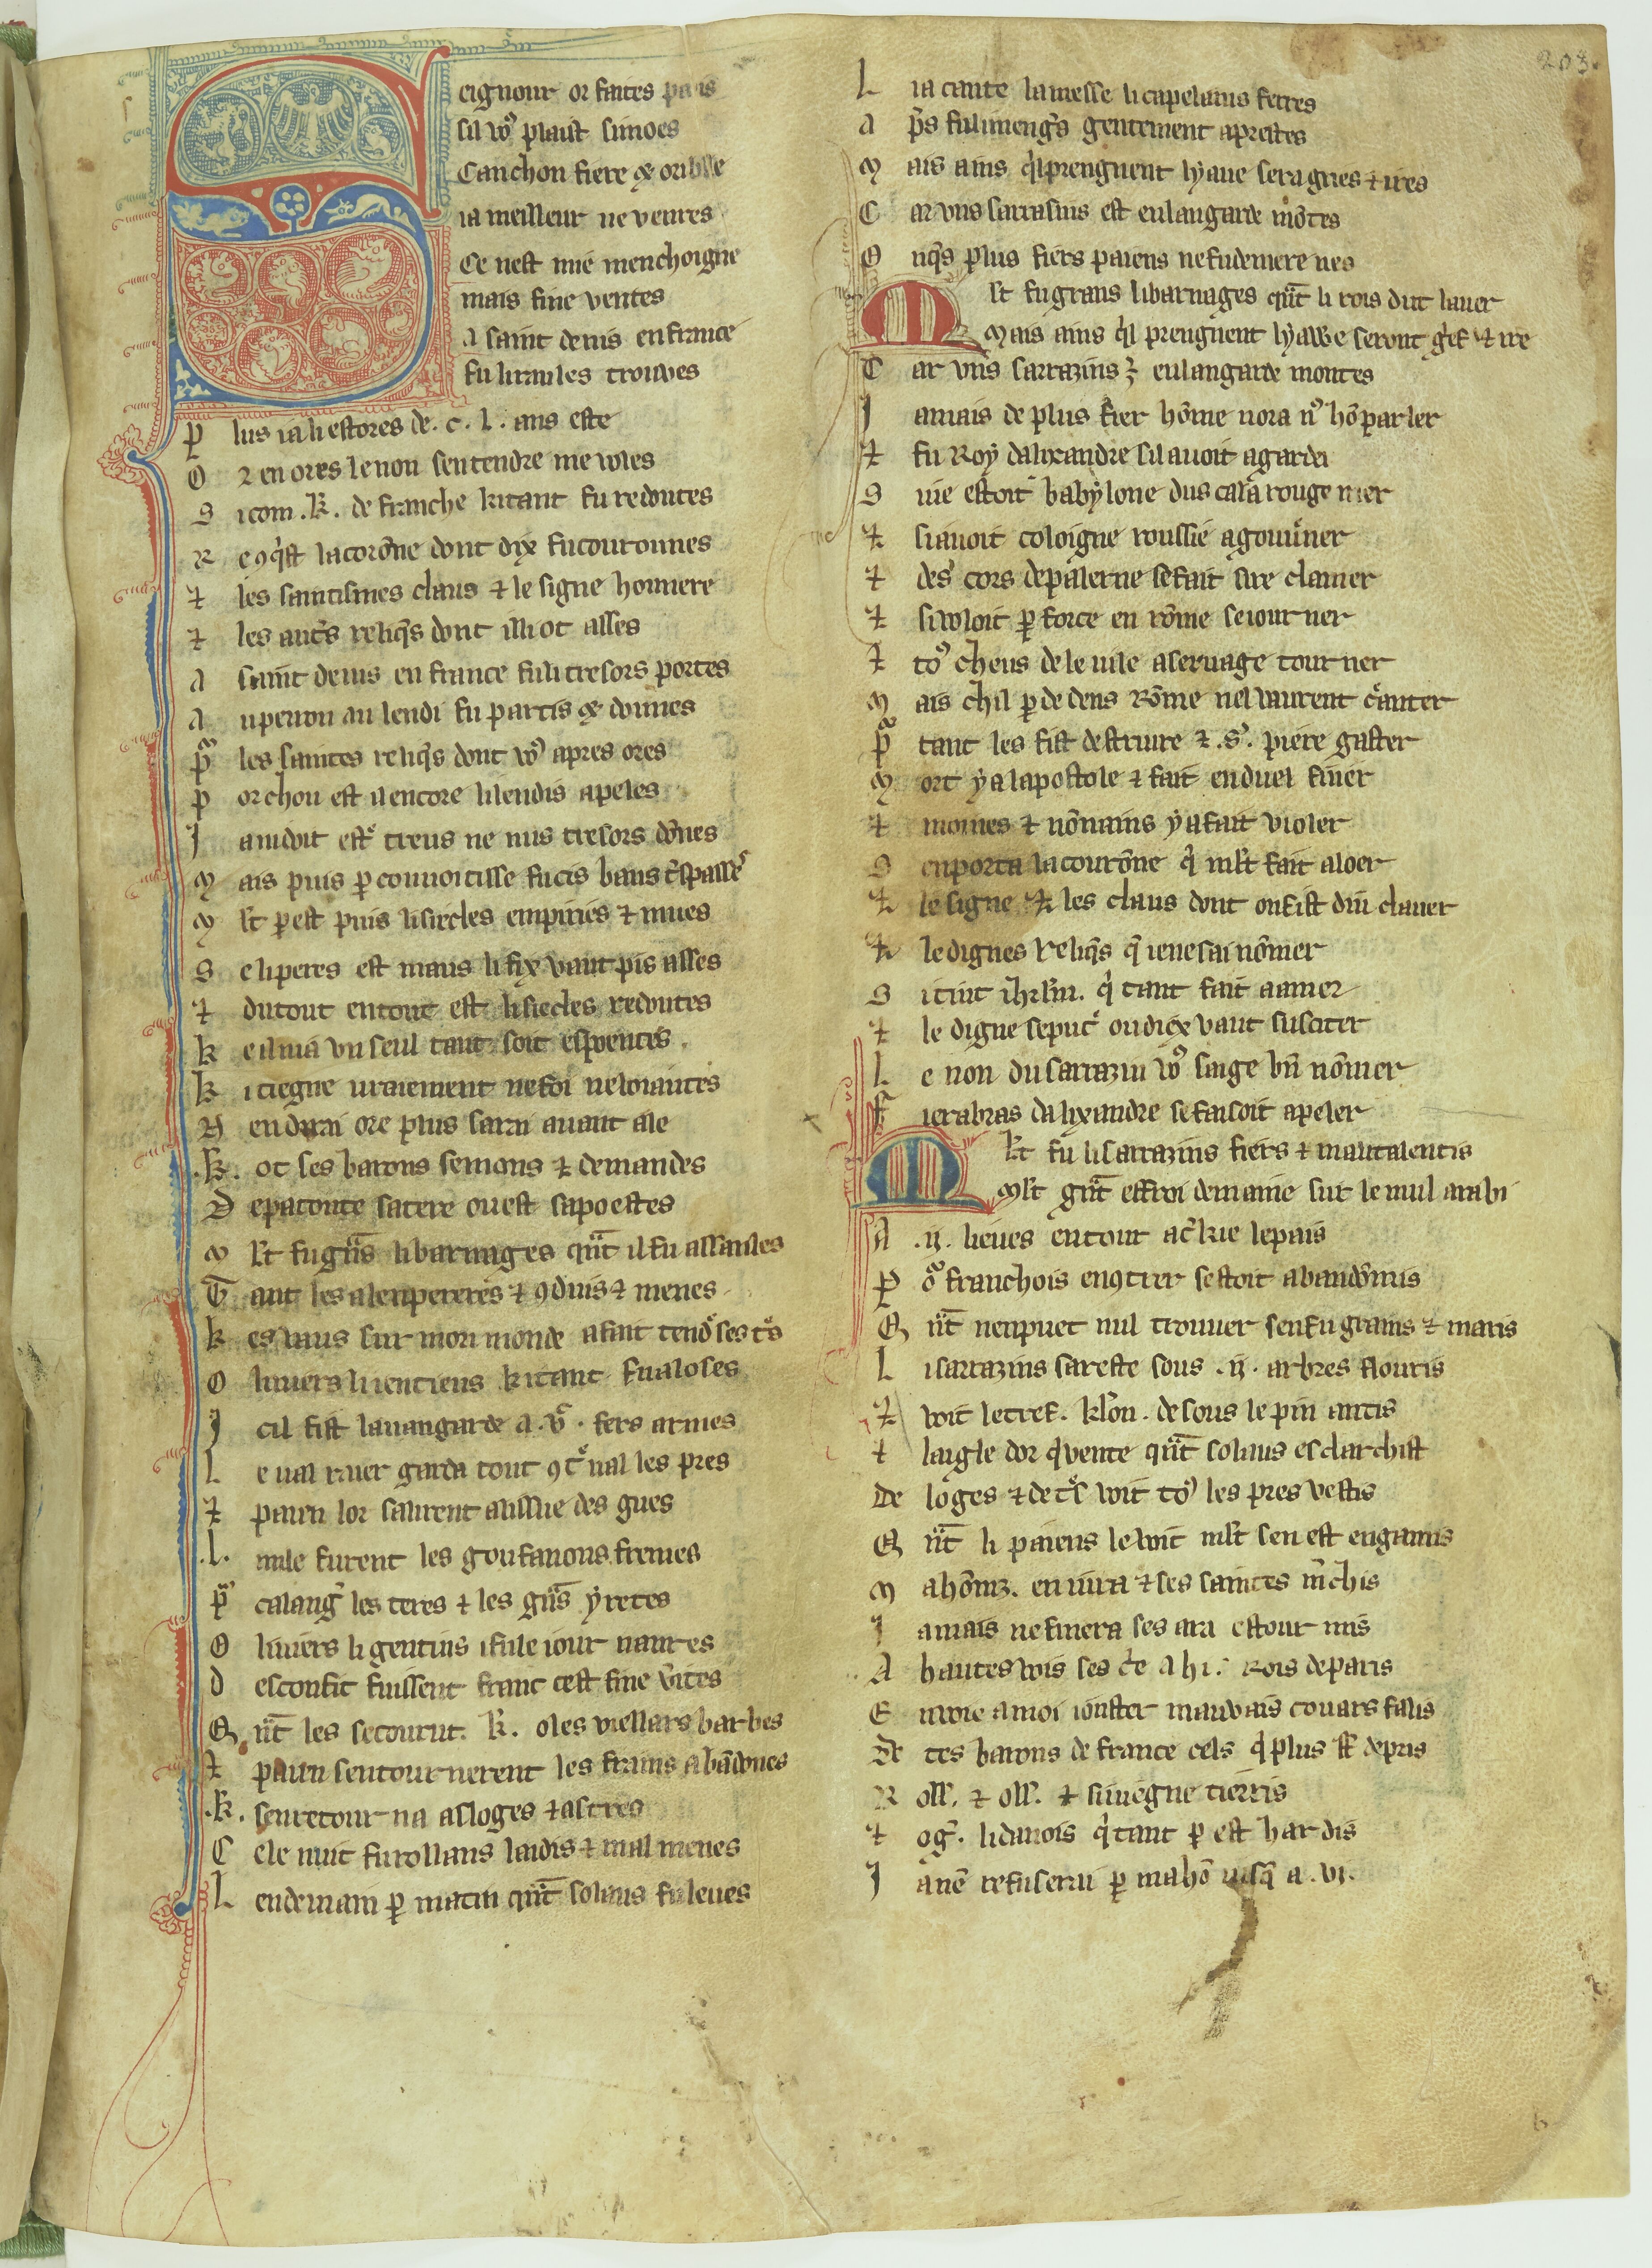 203.
Seignour or faites pais
sil vo⁹ plaist si moes
Canchon fiere & orible
ia meilleur ne venres
Ce nest mie menchoigne
mais fine verites
a saint denis en france
fu li raules trouves
P lus ia li estores de .c.l. ans este
O r en ores le non sentendre me voles
S i com .k. de franche ki tant fu redoutes
R e ꝯq̇st la corōne dont dix fu couronnes
⁊ les saintismes claus ⁊ le signe honnere
⁊ les aut̓s reliq̄s dont illi ot asses
A saint denis en france fu li tresors portes
A u perron au lendi fu partis & donnes
P᷑ les saintes reliq̄s dont vo⁹ apres ores
P or chou est il encore li lendis apeles
J a ni doit est᷑ treus ne nus tresors dōnes
M ais puis ꝑ convoitisse fu cis bans t̓spasse᷑
M lt ꝑ est puis li siecles empiries ⁊ mues
S e li peres est maus li fix vaut pis asses
⁊ du tout en tout est li siecles redoutes
K e il nia un seul tant soit espoentes
K i tiegne vraiement ne foi ne loiautes
N en dirai ore plus sarai avant ale
.K. ot ses barons semons ⁊ demandes
D e par toute sa tere ou est sa poestes
M lt fu gn̄s li barnages qn̄t il fu assanles
T ant les a lenpereres ⁊ ꝯduis ⁊ menes
K es vaus sur mori monde a fait tend᷑ ses t᷑s
O livers li gentiens ki tant fu aloses
J cil fist lavangarde a .v᷑. fers armes
L e val raier garda tout ꝯt᷑ val les pres
⁊ paien lor salirent a lissue des gues
.L. mile furent les goufanons fremes
P᷑ calang̓ les teres ⁊ les gn̄s yretes
O livers li gentius i fu le iour navres
D esconfit fuissent franc cest fine v̓ites
Q n̄t les secourut .k. o les viellars barbes
⁊ paien sen tournerent les frains abādones
.K. sen retour na as loges ⁊ as tres
C ele nuit fu rollans laidis ⁊ mal menes
L endemain ꝑ matin qn̄t solaus fu leves
L i a cante la messe li capelains fetres
A p̓s fu li meng̓s gentement aprestes
M ais ains q̇l prengnent lyaue sera gries ⁊ ires
C ar uns sarrasins est en langarde mōtes
O nq̄s plus fiers paiens ne fu de mere nes
Mlt fu grans li barnages qn̄t li rois dut laver
Mais ains q̇l prengnent lyawe seront g̓ef ⁊ ire
C ar uns sarrazins ē en langarde montes
J amais de plus fier hōme nora n⁹ hō parler
⁊ fu Roy dalixandre sil avoit a garder
S uie estoit babylone dus ca la rouge mer
⁊ si avoit coloigne roussie a gouv̓ner
⁊ des tors de palerne se fait sire clamer
⁊ si voloit ꝑ force en rōme seiourner
⁊ to⁹ cheus de le vile a servage tourner
M ais chil ꝑ de dens Rōme nel vaurent c̓anter
P᷑ tant les fist destruire ⁊ .s᷑. piere gaster
M ort y a lapostole ⁊ fait en duel finer
⁊ moines ⁊ nōnains y a fait violer
S en porta la courōne q̇ mlt fait a loer
⁊ le signe ⁊ les claus dont on fist diu claver
⁊ le dignes reliq̄s q̄ ie ne sai nōmer
S i tint ihrlm̄. q̇ tant fait a amer
⁊ le digne sepuc᷑ ou diex vaut susciter
L e non du sarrazin vo⁹ singe bn̄ nōmer
F ierabras dalixandre se faisoit apeler
Mlt fu li sarrazins fiers ⁊ mautalentis
Mlt gn̄t effroi demaine sur le mul arabi
A .ij. lieues entour ac̓kie le pais
P o᷑ franchois enꝯtrer sestoit abandōnis
Q n̄t nen puet nul trouver sen fu grains ⁊ maris
L i sarrazins sareste sous .ij. arbres flouris
⁊ voit le tref .klon. desous le pin antis
⁊ laigle dor q̇ vente qn̄t solaus esclarchist
De loges ⁊ de t᷑s voit to⁹ les pres vestis
Q n̄t li paiens le voit mlt sen est engamis
M ahōmꝫ. en iura ⁊ ses saintes m̓chis
J amais ne finera ses ara estour mis
A hautes vois ses c̓e ahi .rois de paris
E nvoie a moi iouster mauvais couars falis
De tes barons de france cels q̇ plus st̄ de pris
R oll̄. ⁊ oll̄. ⁊ si viegne tierris
⁊ og᷑. li danois q̇ tant ꝑ est hardis
J a nē refuserai ꝑ mahō iusq̄ a .vi.